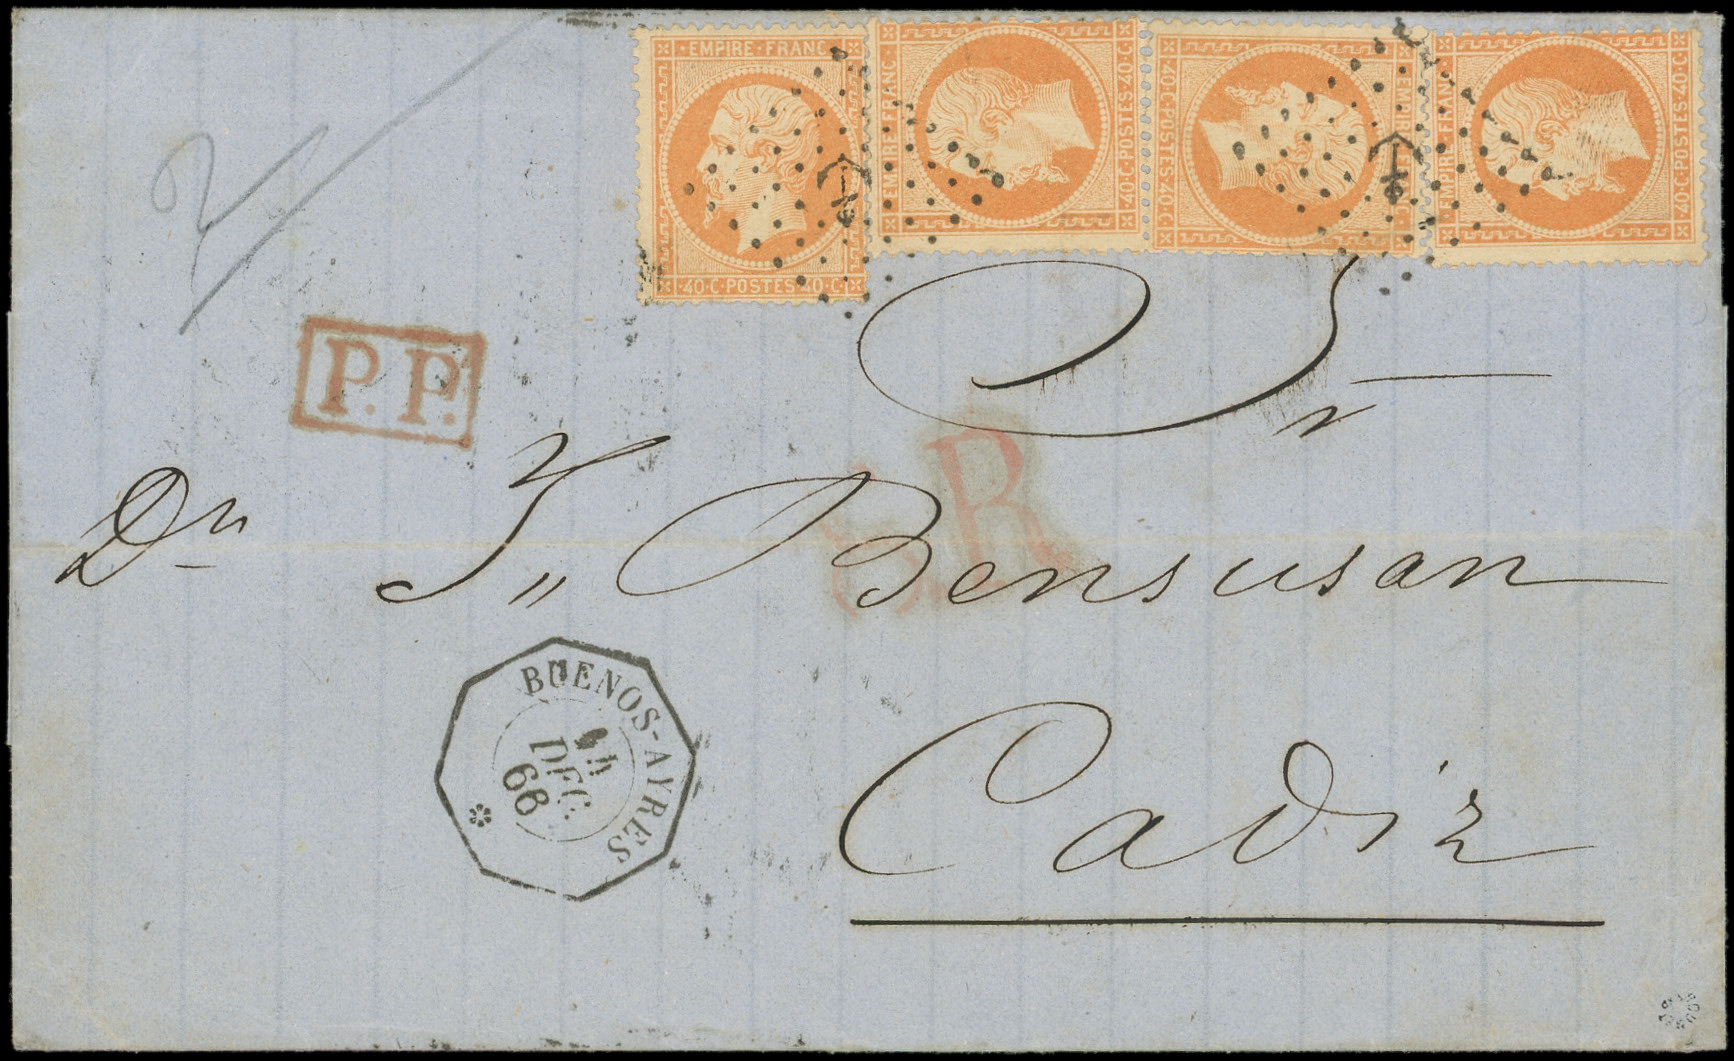 EMPIRE·FRANC
40·C·POSTES·40·C·
EMPIRE·FRANC
40·C·POSTES·40·C
EMPIRE
40·C·POSTES·40·C
EMPIRE·FRANC
40·C·POSTES·40·C
2
P.P.
Sr
R
Dn J„ Bensusan
Cadiz
BUENOS-AYRES
14
DEC.
66